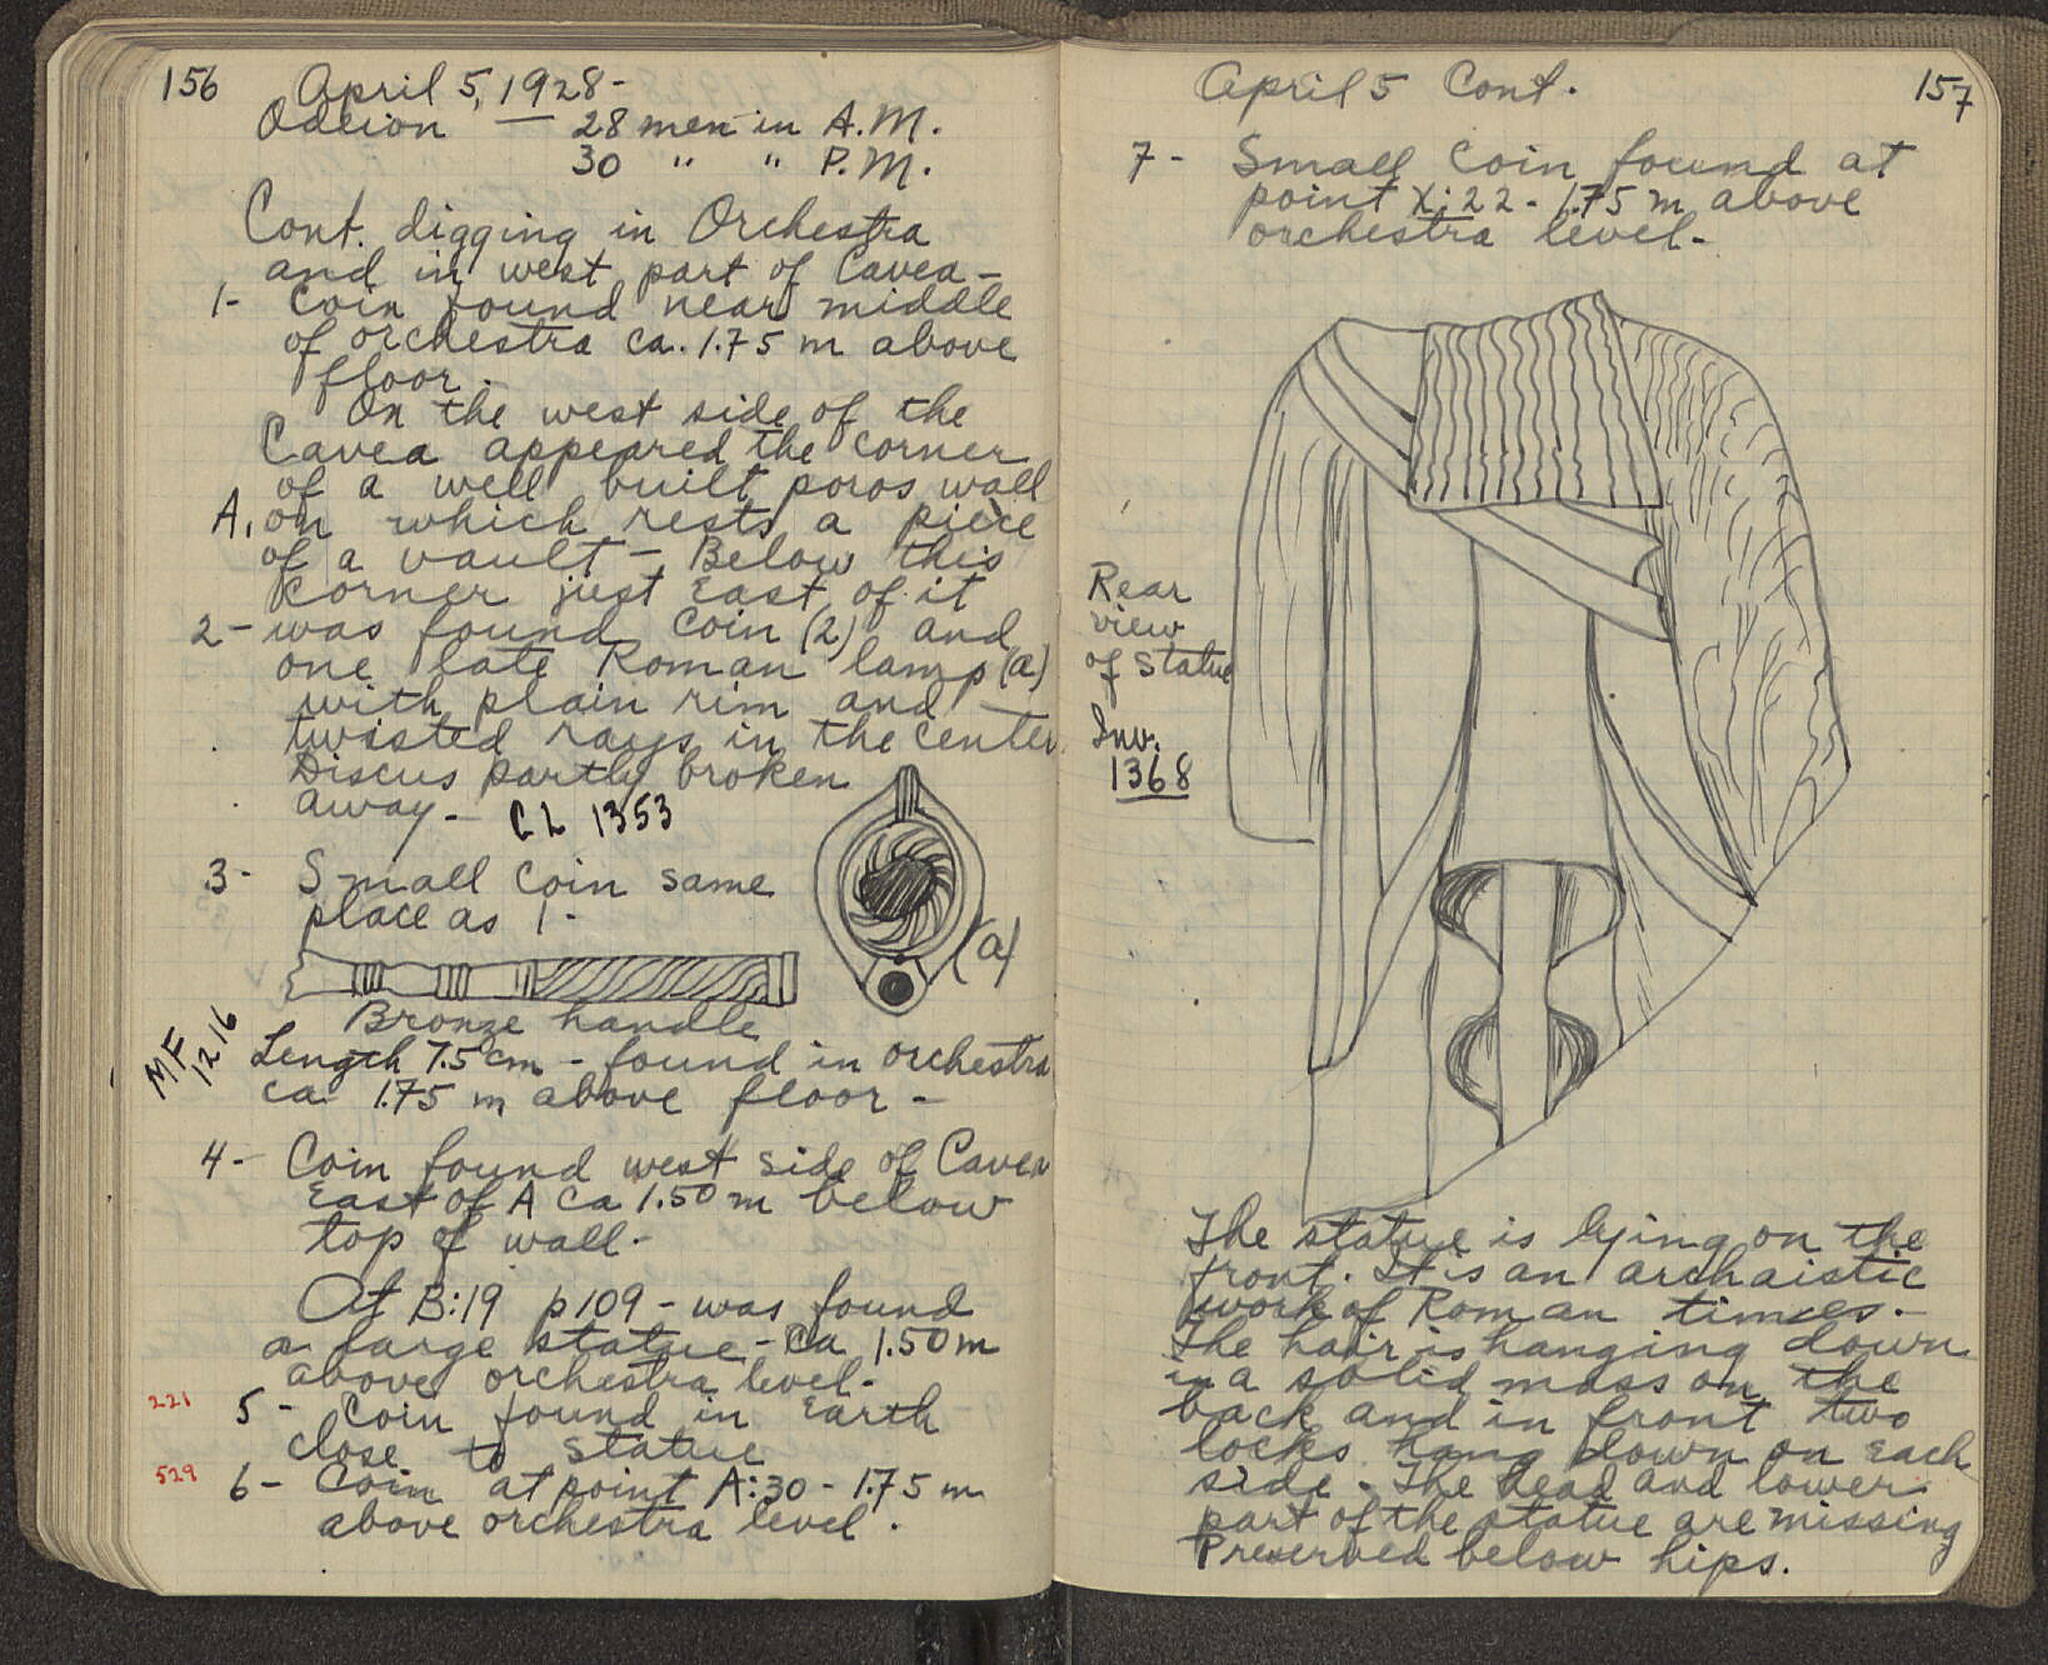 156 April 5, 1928-
Odeion — 28 men in A.M.
30 " " P.M.
Cont. digging in Orchestra
and in west part of Cavea-
1- Coin found near middle
of orchestra ca. 1.75 m above
floor.
On the west side of the
Cavea appeared the corner
of a well built poros wall
A. on which rests a piece
of a vault - Below this
corner just East of it
2- was found coin (2) and
one late Roman lamp (a)
with plain rim and
twisted rays in the center
Discus partly broken
away- CL 1353
3- Small coin same
place as 1-
(a)
Bronze handle
MF 1216
Length 7.5 cm - found in orchestra
ca 1.75 m above floor-
4- Coin found west side of Cavea
East of A ca 1.50 m below
top of wall-
At B:19 p109 - was found
a large statue - Ca 1.50 m
above orchestra level-
221 5- Coin found in Earth
close to statue
529 6- Coin at point A:30 - 1.75 m
above orchestra level.
April 5 Cont. 157
7- Small coin found at
point X:22 - 1.75 m above
orchestra level-
Rear
view
of statue
Inv.
1368
The statue is lying on the
front. It is an archaistic
work of Roman times-
The hair is hanging down
in a solid mass on the
back and in front two
locks hang down on Each
side. The head and lower
part of the statue are missing
Preserved below hips.